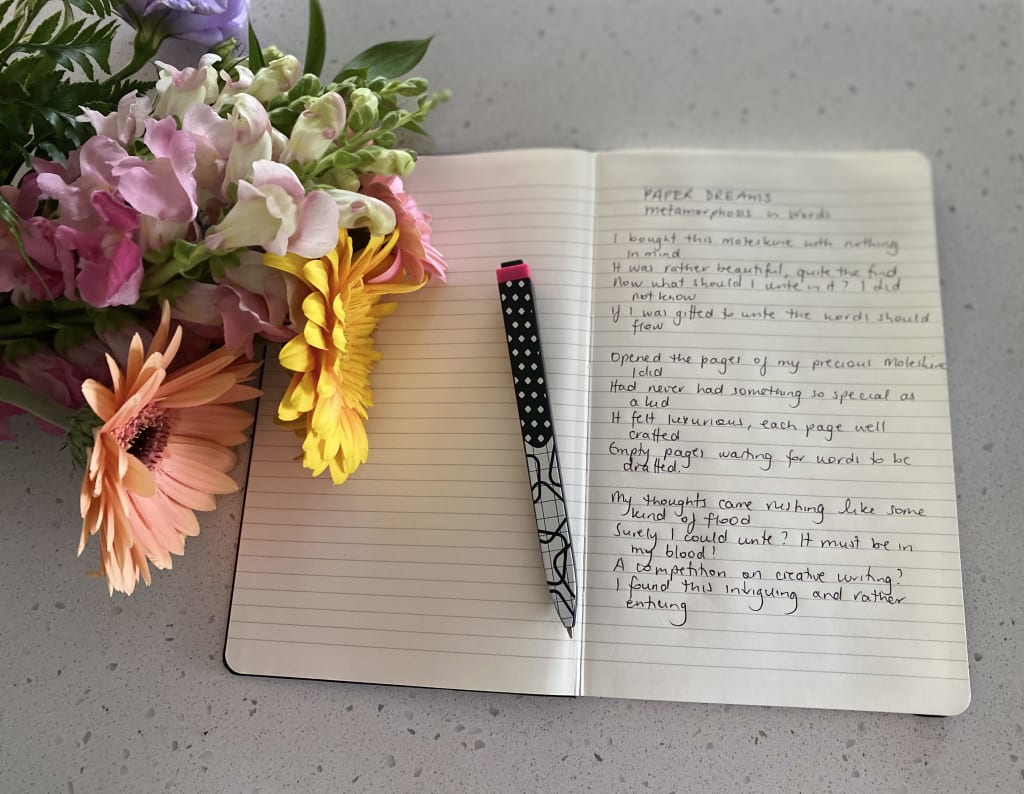 PAPER DREAMS
metamorphosis in words
I bought this moleskine with nothing
in mind
It was rather beautiful, quite the find
Now what should I write in it? I did
not know
If I was gifted to write the words should
flow
Opened the pages of my precious Moleskine
I did
Had never had something so special as
a kid
It felt luxurious, each page well
crafted
Empty pages waiting for words to be
drafted.
My thoughts came rushing like some
kind of flood
Surely I could write? It must be in
my blood!
A competition on creative writing?
I found this intriguing and rather
enticing